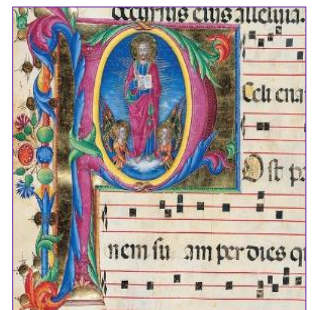 occursus eius alleluia.
Celi ena
POst pa
nem su am per dies q